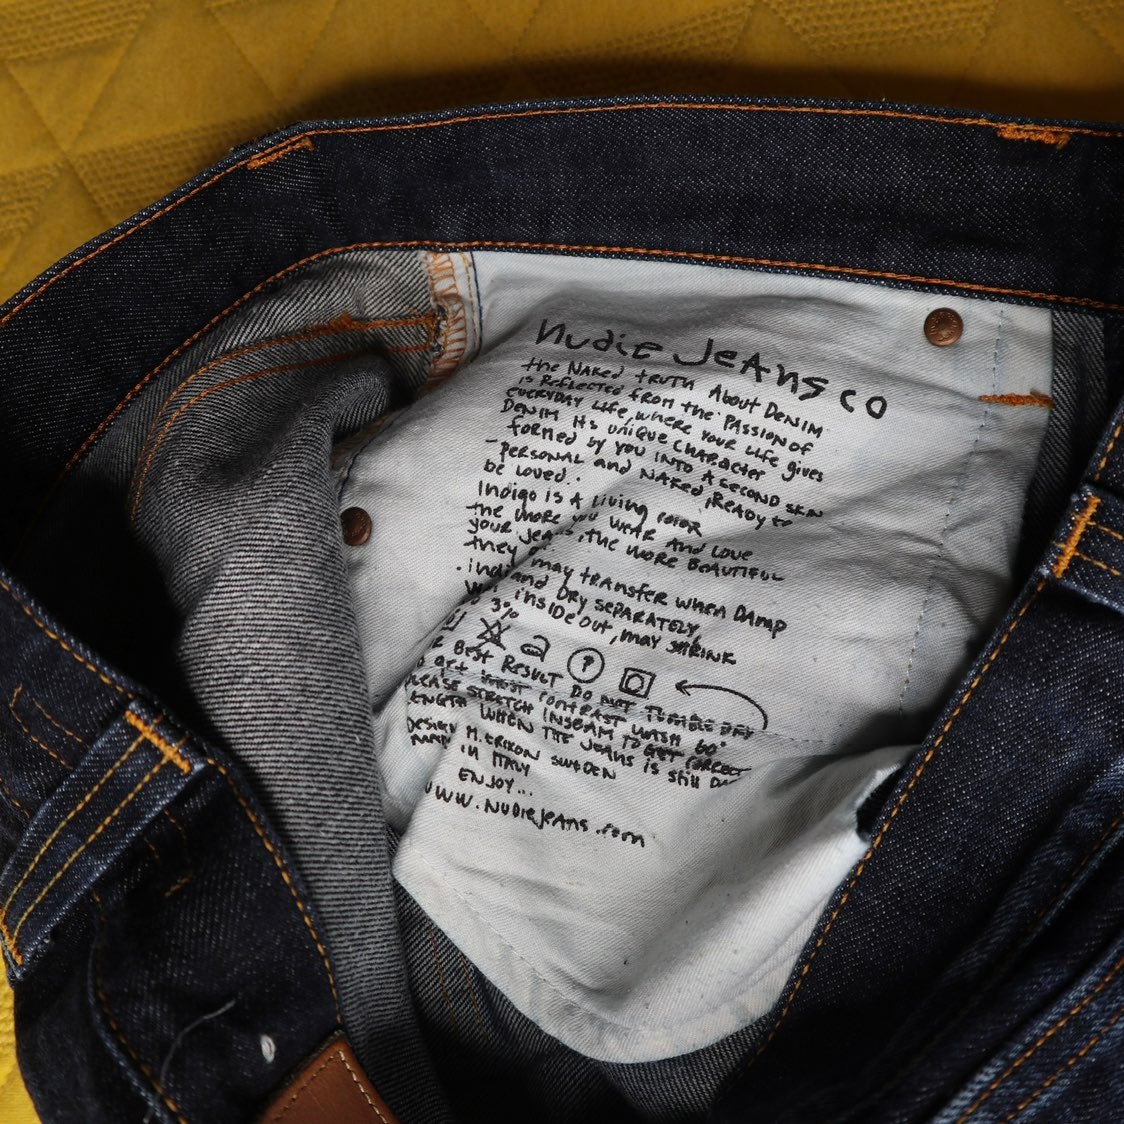 nudie JeAns co
the NAked tRUTH About DENIM
is Reflected from the PASSION of
EVERYDAY Life, where YOUR Life gives
DENIM its UNIQUE CHARACTER
formed by you INTO A SECOND SKIN
- PERSONAL and NAKed, READY to
be Loved..
Indigo is A living color
the more you WEAR AND LOVE
your Jeans, the MORE BEAUTIFUL
they
may tRANSFER wHEN DAMP
and DRY SEPARATELY,
inside out, may SHRINK
3%
BEST RESULT DO NOT TUMBLE DRY
CONTRAST WASH 60°
STRETCH INSEAM TO GET CORRECT
LENGTH WHEN THE JEANS is still
DESIGN M. ERIXON SWEDEN
IN ITALY
ENJOY...
WWW.NUDIEJEANS.com